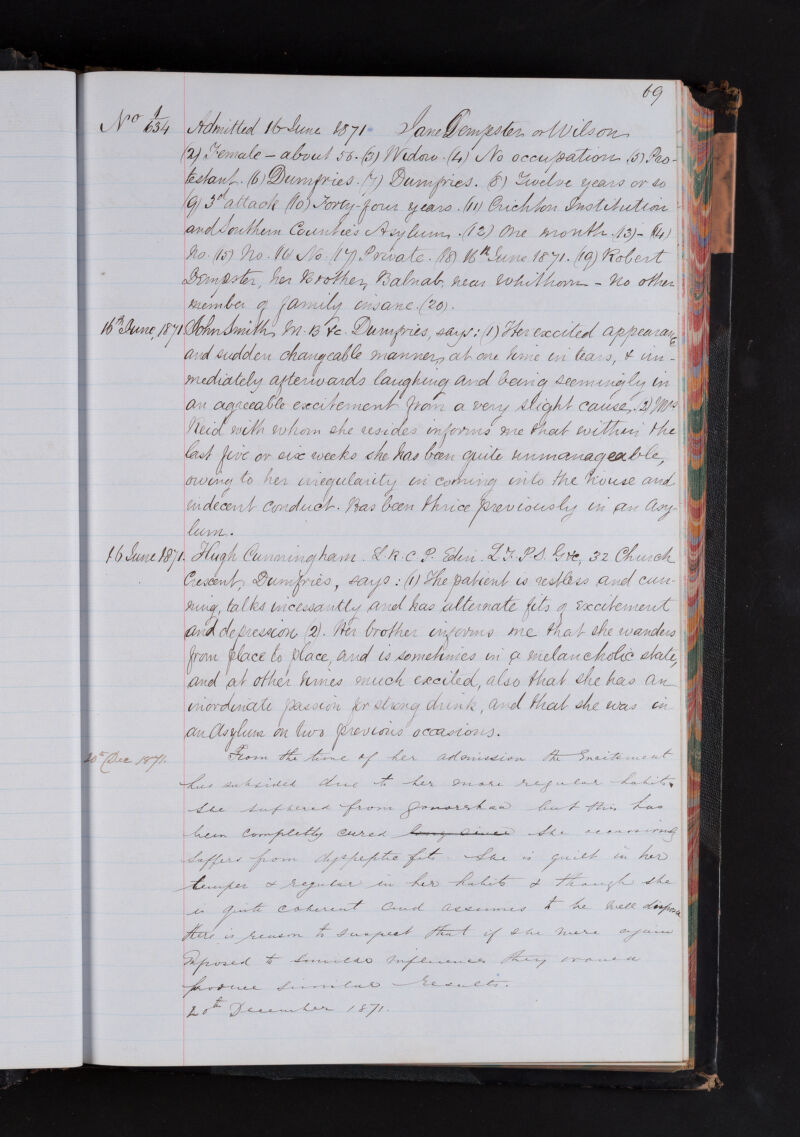 69
No 1/634 Admitted 16 June 1871. Jane Dempster or Wilson
(2) Female – about 56. (3) Widow. (4) No occupation (5) Pro-
testant. (6) Dumfries. (7) Dumfries. (8) Twelve years or so
(9) 3rd attack (10) Forty-four years. (11) Crichton Institution
and Southern Counties Asylum. (12) One month. (13) – (14)
No. (15) No. 16) No (17) Private. (18) 16th June 1871. (19) Robert
Dempster, her Brother, Balnab, near Whithorn – No other
member of family insane. (20).
16th June, 1871. John Smith, M.B &c. Dumfries, says: (1) Her excited appearance
and sudden changeable manner, at one time in tears, & im-
mediately afterwards laughing and being seemingly in
an agreeable excitement from a very slight cause, 2) Mrs
Reid with whom she resides informs me that within the
last five or six weeks she has been quite unmanageable,
owing to her irregularity in coming into the house and
indecent conduct. Has been thrice previously in an Asy-
lum.
16 June 1871. Hugh Cunningham. L.R.C.P. Edin. L.F.P.S. G &c, 32 Church
Crescent, Dumfries, says: (1) The patient is restless and cun-
ning, talks incessantly and has alternate fits of excitement
and depression (2). Her brother informs me that she wanders
from place to place, and is sometimes in a melancholic state,
and at other times much excited, also that she has an
inordinate passion for strong drink, and that she was in
an Asylum on two previous occasions.
20th Dec 1871. From the time of her admission the Excitement
has subsided due to her more regular habits.
She suffered from gonorrhaa but this has
been completly cured long since She
suffers from dyspeptic fits. She is quiet in her
temper & regular in her habits & though she
is quite coherent and assumes to be well
there is reason to suspect that if she were again
exposed to similar influences they would
produce similar results.
20th December 1871.